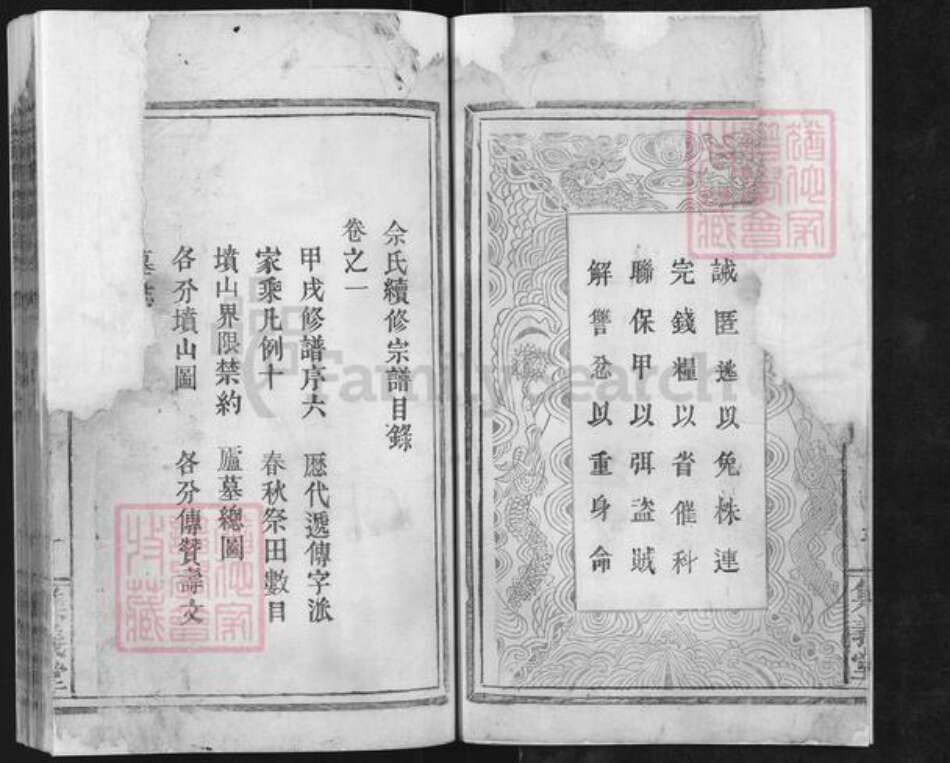 誡匿逃以免株連
完錢糧以省催科
聯保甲以弭盜賊
解讐忿以重身命
集義堂
佘氏續修宗譜目錄
卷之一
甲戌修譜序六 歷代遞傳字派
家乘凡例十 春秋祭田數目
墳山界限禁約 廬墓總圖
各分墳山圖 各分傳贊壽文
墓誌
集義堂
FamilySearch